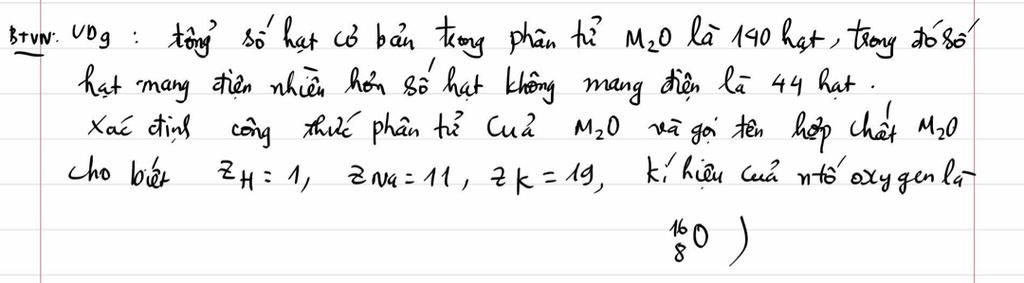 BTVN: VD9 : tổng số hạt cơ bản trong phân tử M₂O là 140 hạt, trong đó số
hạt mang điện nhiều hơn số hạt không mang điện là 44 hạt.
Xác định công thức phân tử của M₂O và gọi tên hợp chất M₂O
cho biết Z_H = 1, Z_Na = 11, Z_K = 19, kí hiệu của ntố oxygen là
¹⁶₈O )